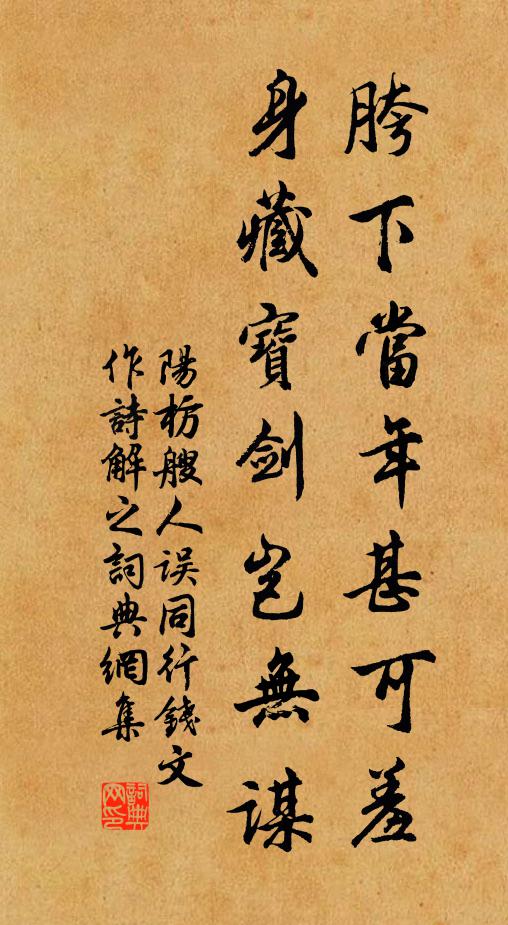 胯下當年甚可羞
身藏寶劍豈無謀
陽枋艘人误同行錢文
作詩解之詞典網集
詞典网印